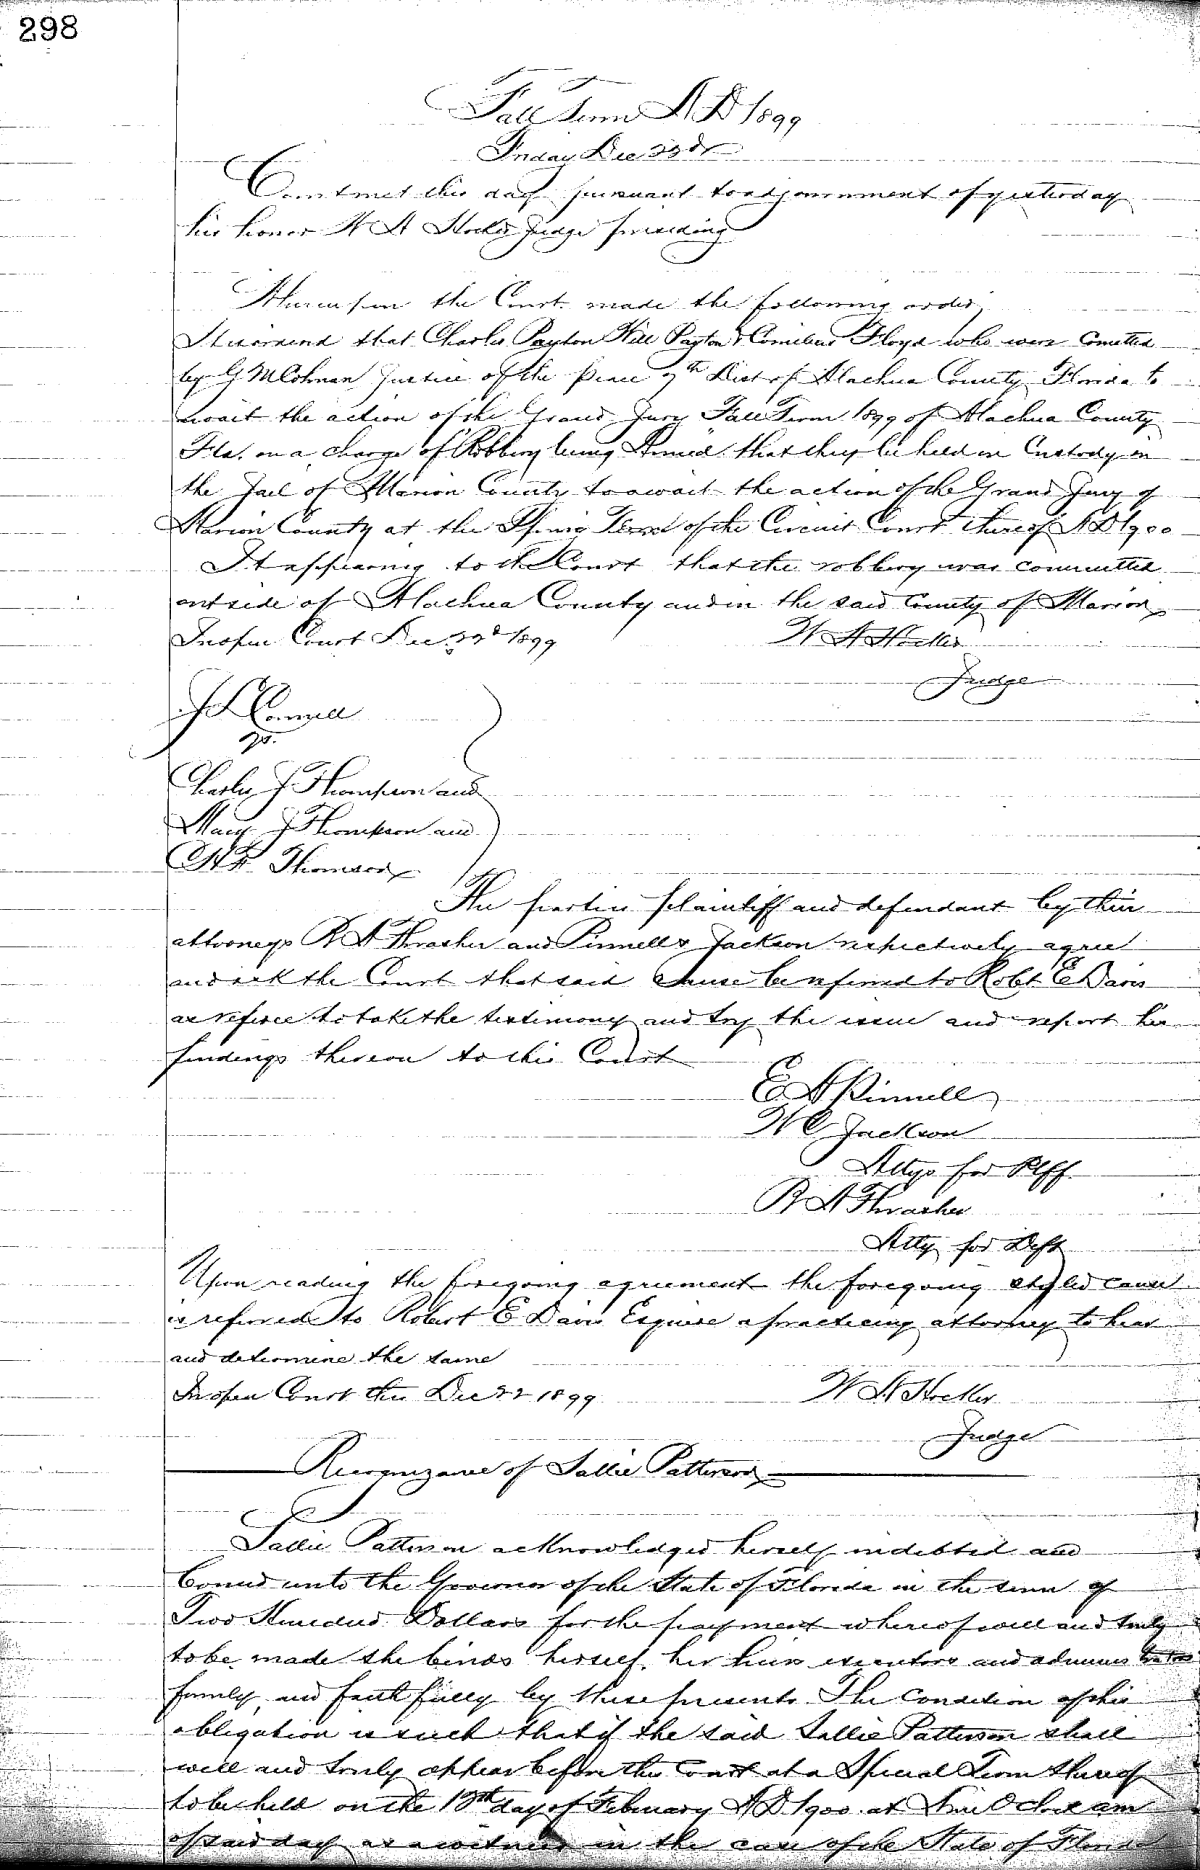 298
Fall Term A D 1899
Friday Dec 22d
Court met this day pursuant to adjournment of yesterday
his honor W A Hocker Judge presiding
Thereupon the Court made the following order,
It is ordered that Charles Payton Will Payton & Cornelius Floyd who were comitted
by G M Cohnan Justice of the Peace 7th Dist of Alachua County Florida to
await the action of the Grand Jury Fall Term 1899 of Alachua County
Fla. on a charge of Robbery being Armed that they be held in Custody in
the Jail of Marion County to await the action of the Grand Jury of
Marion County at the Spring Term of the Circuit Court thereof A D 1900
It appearing to the Court that the robbery was committed
outside of Alachua County and in the said County of Marion
In open Court Dec. 22d 1899 W A Hocker
Judge
vs.
Charles J Thompson and
Mary J Thompson and
Thomson
The parties plaintiff and defendant by their
attorneys R A Thrasher and Pinnell & Jackson respectively agree
and ask the Court that said cause be referred to Robt E Davis
as referee to take the testimony and try the issue and report his
findings thereon to this Court
E A Pinnell
W C Jackson
Attys for Plff.
R A Thrasher
Atty for Deft
Upon reading the foregoing agreement the foregoing styled cause
is referred to Robert E Davis Esquire a practicing attorney to hear
and determine the same
In open Court this Dec 22 1899 W A Hocker
Judge
Recognizance of Sallie Patterson
Sallie Patterson acknowledges herself indebted and
bound unto the Governor of the State of Florida in the sum of
Two Hundred Dollars for the payment whereof well and truly
to be made she binds herself, her heirs executors and administrators
firmly and faithfully by these presents The Condition of this
obligation is such that if the said Sallie Patterson shall
well and truly appear before the Court at a Special Term thereof
to be held on the 13th day of February A D 1900 at Nine O clock am
of said day as a witness in the case of the State of Florida